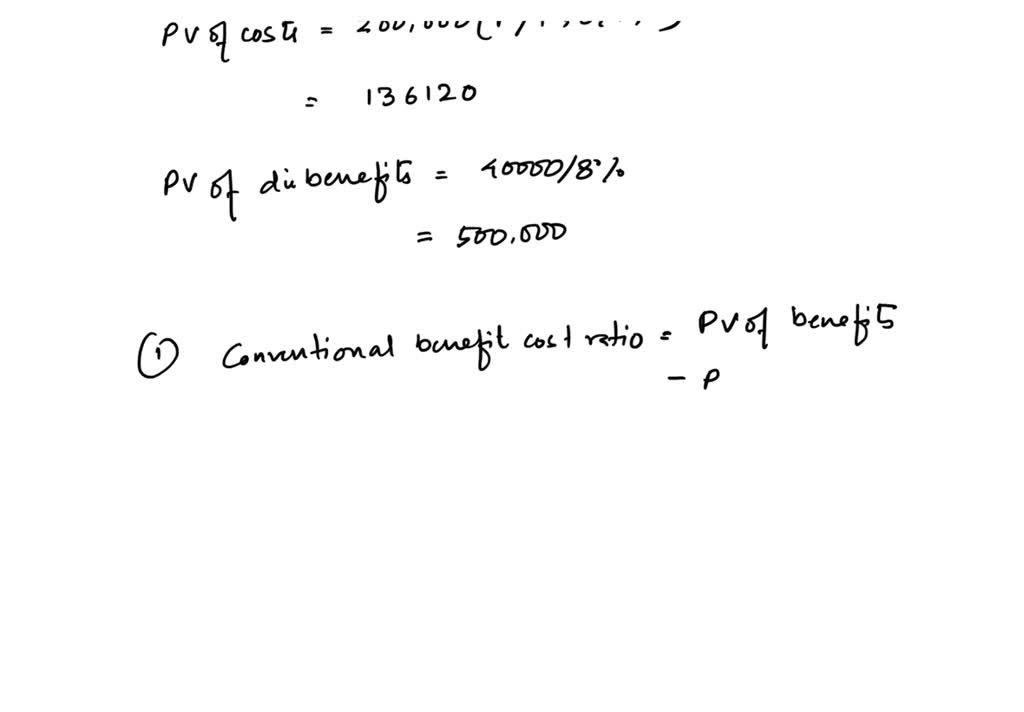 PV of costs = 200,000(
= 136120
PV of disbenefits = 40000/8%
= 500,000
① Conventional benefit cost ratio = PV of benefits
- P